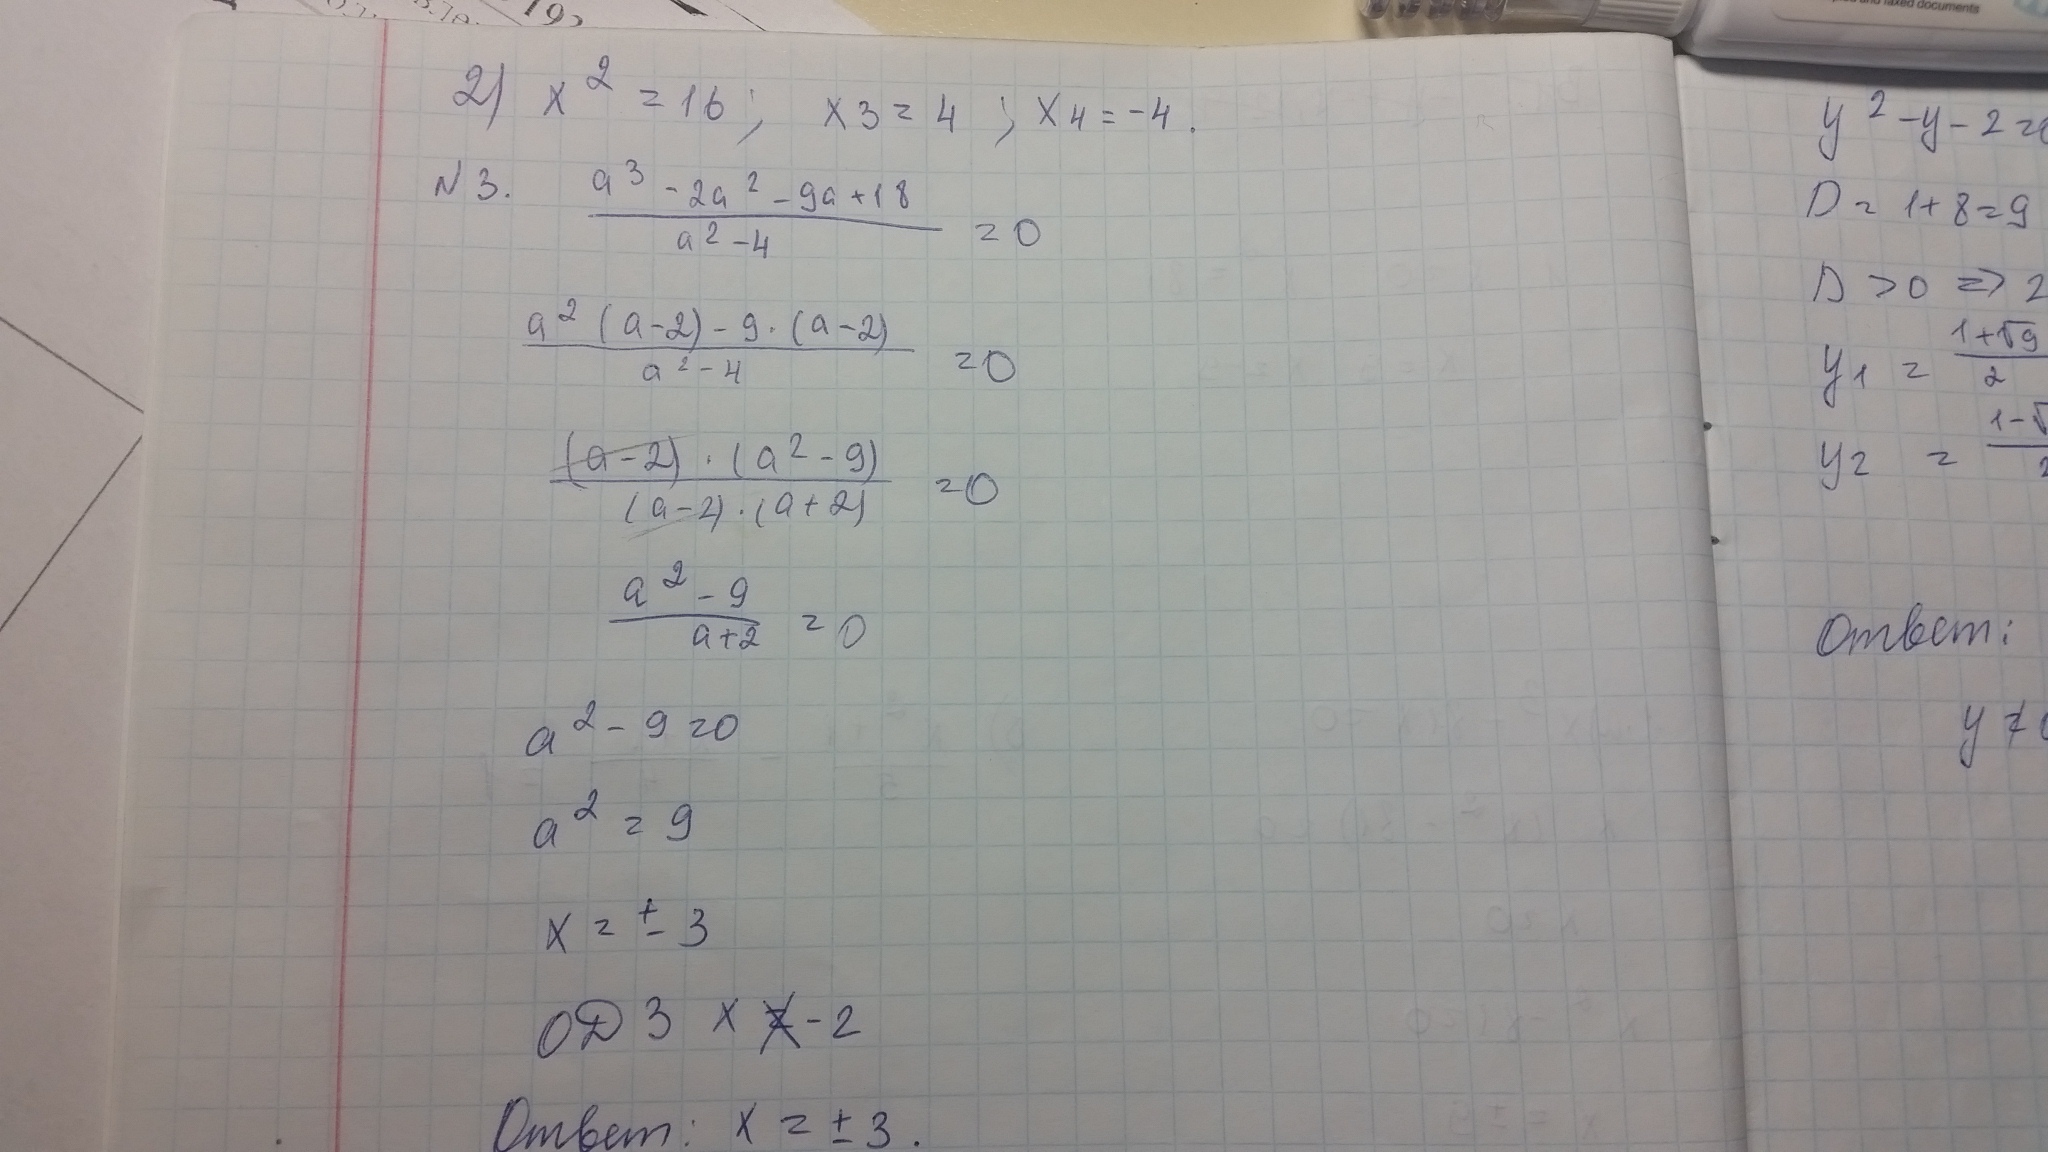 2) x² = 16; x3 = 4; x4 = -4.
N3. a³ - 2a² - 9a + 18
a² - 4 = 0
a² (a - 2) - 9 · (a - 2)
a² - 4 = 0
(a - 2) · (a² - 9)
(a - 2) · (a + 2) = 0
a² - 9
a + 2 = 0
a² - 9 = 0
a² = 9
x = ± 3
ОДЗ x ≠ -2
Ответ: x = ± 3.
y² - y - 2 =
D = 1 + 8 = 9
D > 0 => 2
y1 = 1 + √9
2
y2 = 1 - √
Ответ:
y ≠
and faxed documents